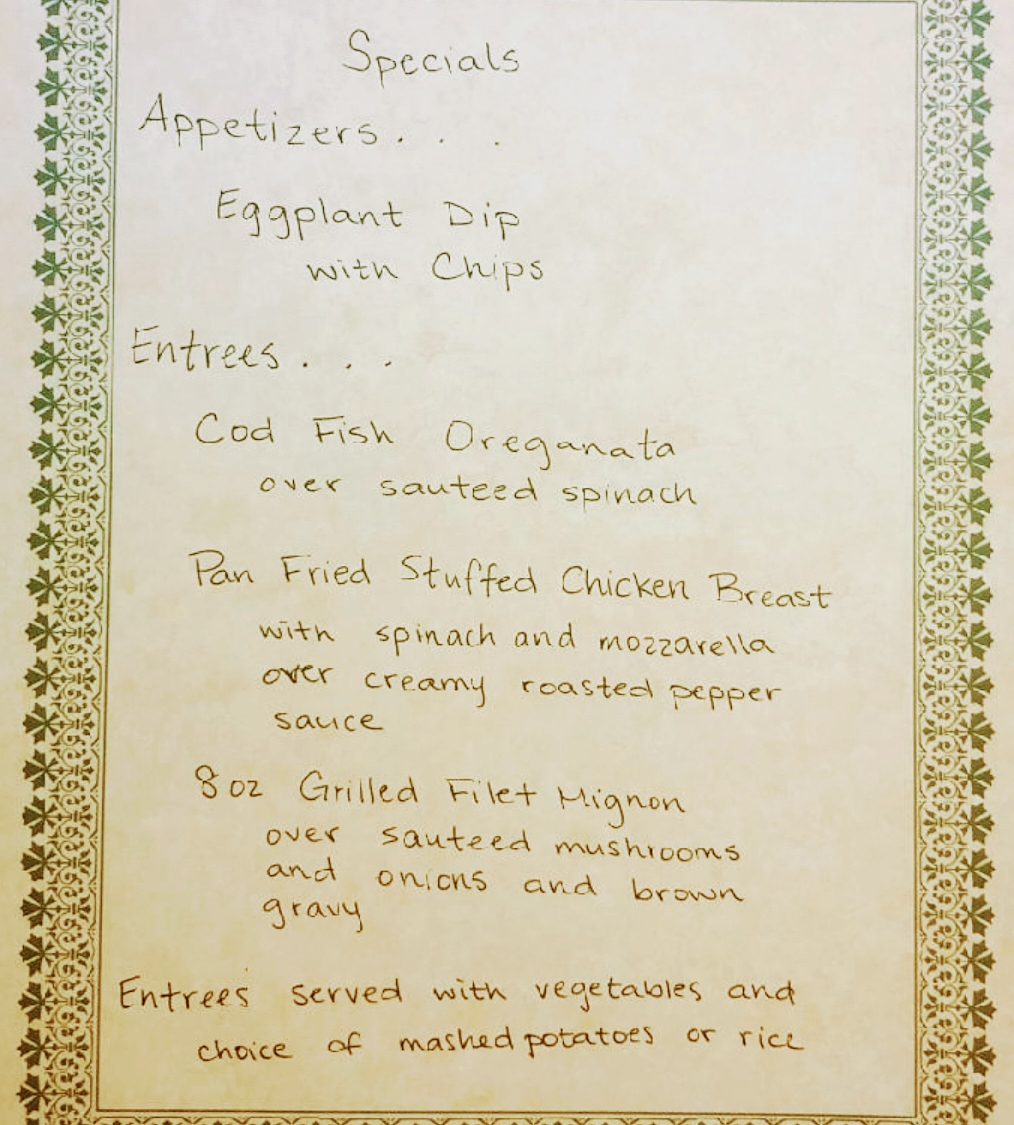 Specials
Appetizers. . .
Eggplant Dip
with Chips
Entrees . . .
Cod Fish Oreganata
over sauteed spinach
Pan Fried Stuffed Chicken Breast
with spinach and mozzarella
over creamy roasted pepper
sauce
8 oz Grilled Filet Mignon
over sauteed mushrooms
and onions and brown
gravy
Entrees served with vegetables and
choice of mashed potatoes or rice